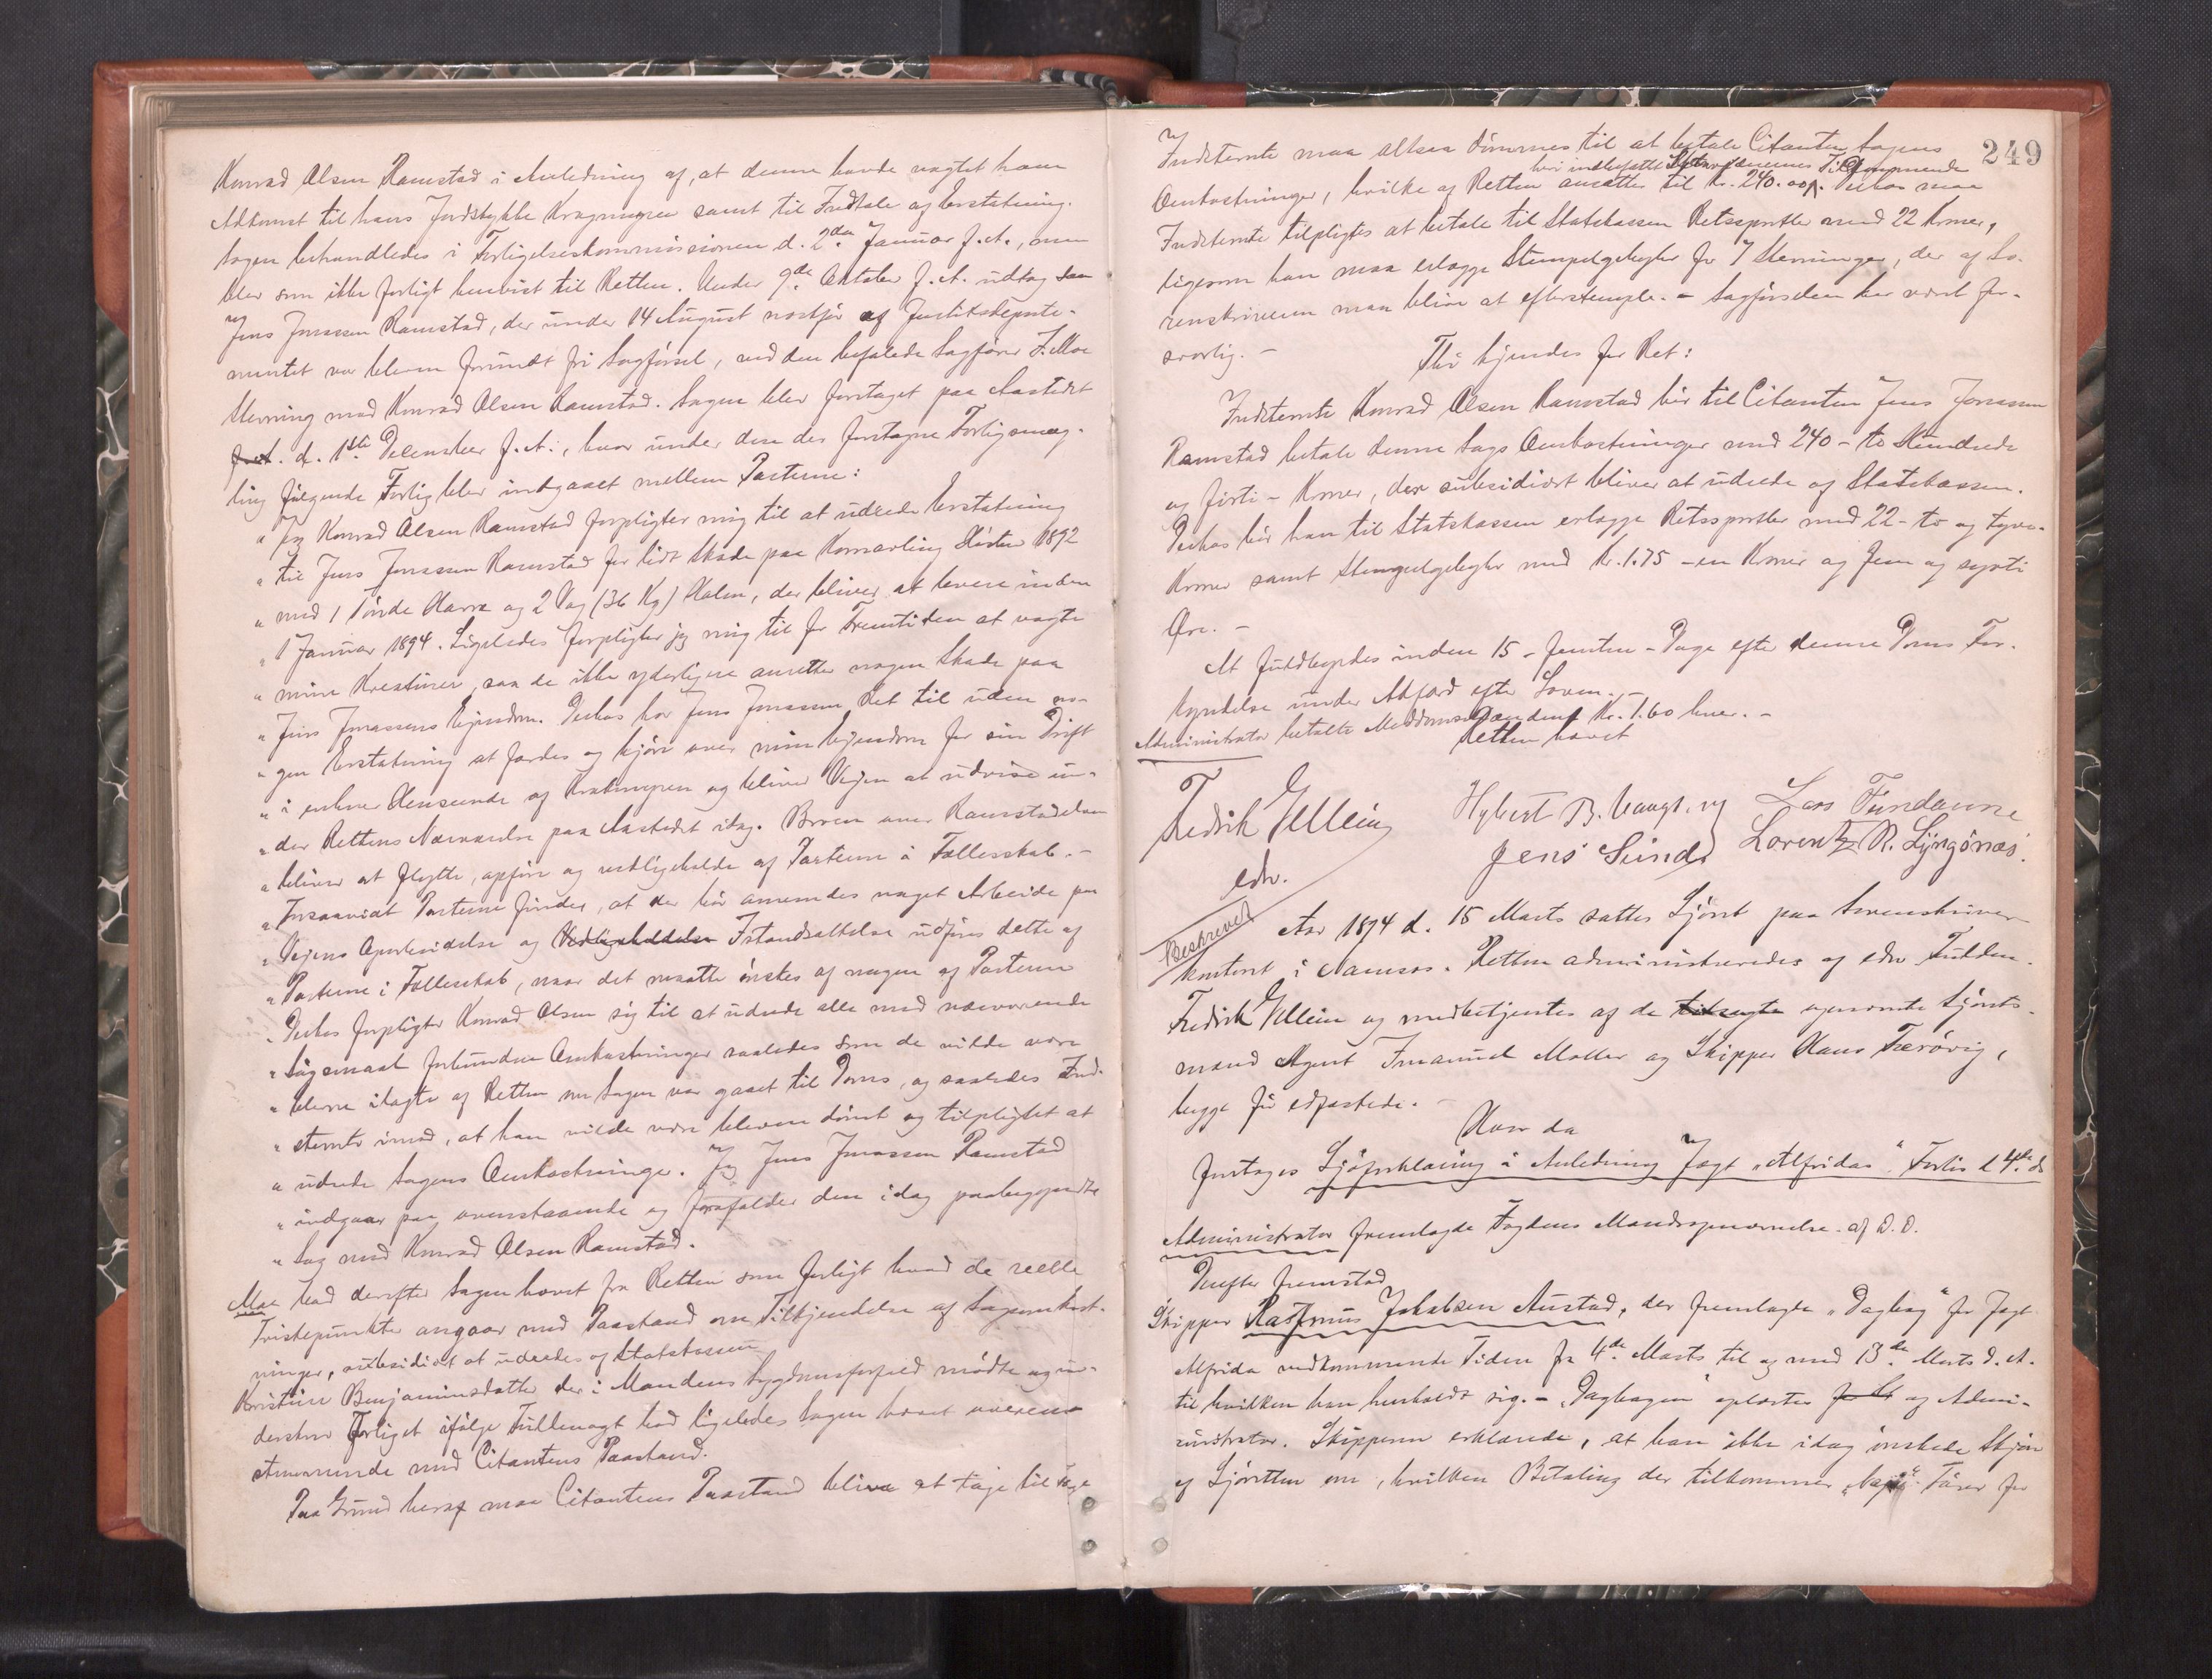 Konrad Olsen Ramstad i Anledning af, at denne havde nægtet ham
Adkomst til hans Jordstykke Kragmyren samt til Indtale og Erstatning.
Sagen behandledes i Forligelseskommissionen d. 2den Januar f. A., men
blev som ikke forligt henvist til Retten. Under 9de Oktober f. A. udtog saa
Jens Jonassen Ramstad, der under 14 August næstfør af Justitsdeparte-
mentet var bleven forundt fri Sagførsel, ved den befalede Sagfører J. Moe
Stevning mod Konrad Olsen Ramstad. Sagen blev foretaget paa Aastedet
d. 1ste December f. A., hvor under den der foretagne Forligsmæg-
ling følgende Forlig blev indgaaet mellem Parterne:
" Jeg Konrad Olsen Ramstad forpligter mig til at udrede Erstatning
" til Jens Jonassen Ramstad for lidt Skade paa Kornavling Høsten 1892
" med 1 Tønde Havre og 2 Vog (36 Kg) Halm, der bliver at levere inden
" 1 Januar 1894. Ligeledes forpligter jeg mig til for Fremtiden at vogte
" mine Kreaturer, saa de ikke yderligere anretter nogen Skade paa
" Jens Jonassens Eiendom. Derhos har Jens Jonassen Ret til uden no-
" gen Erstatning at færdes og kjøre over min Eiendom for sin Drift
" i enhver Henseende og bliver Veien at udvise un-
" der Rettens Nærværelse paa Aastedet idag. Broen over Ramstadelven
" bliver at flytte, opføre og vedligeholde af Parterne i Fællesskab. -
" Forsaavidt Parterne finder, at der bør anvendes noget Arbeide paa
" Veiens Oparbeidelse og Vedligeholdelse Istandsættelse udføres dette af
" Parterne i Fællesskab, naar det maatte ønskes af nogen af Parterne
" Derhos forpligter Konrad Olsen sig til at udrede alle med nærværende
" Søgsmaal forbundne Omkostninger saaledes som de vilde være
" blevne ilagte af Retten om Sagen var gaaet til Doms, og saaledes Ind-
" stevnte imod, at han vilde være bleven dømt og tilpligtet at
" udrede Sagens Omkostninger. Jeg Jens Jonassen Ramstad
" indgaar paa ovenstaaende og frafalder den idag paabegyndte
" Sag mod Konrad Olsen Ramstad.
Moe bad derefter Sagen hævet fra Retten som forligt hvad de reelle
Tvistepunkter angaar med Paastand om Tilkjendelse af Sagsomkost-
ninger, subsidiært at udredes af Statskassen
Kristine Benjaminsdatter der i Mandens Sygdomsforfald mødte og un-
derskrev Forliget ifølge Fuldmagt bad ligeledes Sagen hævet overens-
stemmende med Citantens Paastand.
Paa Grund heraf maa Citantens Paastand blive at tage til Følge
249
Indstevnte maa altsaa dømmes til at betale Citanten Sagens
heri indbefattet Tilkommende
Omkostninger, hvilke af Retten ansættes til Kr. 240.00. Derhos maa
Indstevnte tilpligtes at betale til Statskassen Retssportler med 22 Kroner,
ligesom han maa erlægge Stempelgebyhr for 7 Stevninger, der af So-
renskriveren maa blive at efterstemple. - Sagførselen har været for-
svarlig. -
Thi kjendes for Ret:
Indstevnte Konrad Olsen Ramstad bør til Citanten Jens Jonassen
Ramstad betale denne Sags Omkostninger med 240 - to Hundrede
og firti - Kroner, der subsidiært bliver at udrede af Statskassen.
Derhos bør han til Statskassen erlægge Retssportler med 22 - to og tyve -
Kroner samt Stempelgebyhr med Kr. 1.75 - en Krone og fem og sytti
Øre. -
At fuldbyrdes inden 15 - femten - Dage efter denne Doms For-
kyndelse under Adfærd efter Loven. -
Administrator betalte Meddomsmændene Kr. 1.60 hver. -
Retten hævet
Fredrik Ellein
edsv.
Hybert B. Vaagt. ng
Lars Tundanne
Jens Sund
Lorentz R. Lyngsnæs.
Beskrevet
Aar 1894 d. 15 Marts sattes Sjøret paa Sorenskriver-
kontoret i Namsos. Retten administreredes af edsv Fuldm.
Fredrik Ellein og medbetjentes af de tilsagte opnævnte Sjørets-
mænd Agent Imanuel Møller og Skipper Hans Færøvig,
begge før edfæstede. -
Hvor da
foretages Sjøforklaring i Anledning Jagt "Alfridas" Forlis d 4de ds
Administrator fremlagde Fogdens Mandsopnævnelse af D. D.
Derefter fremstod
Skipper Rasmus Jakobsen Austad, der fremlagde "Dagbog" for Jagt
Alfrida vedkommende Tiden fra 4de Marts til og med 13de Marts d. A.
til hvilken han henholdt sig. - "Dagbogen" oplæstes af Admi-
nistrator. Skipperen erklærede, at han ikke idag ønskede Skjøn
af Sjøretten om, hvilken Betaling der tilkommer Fører for